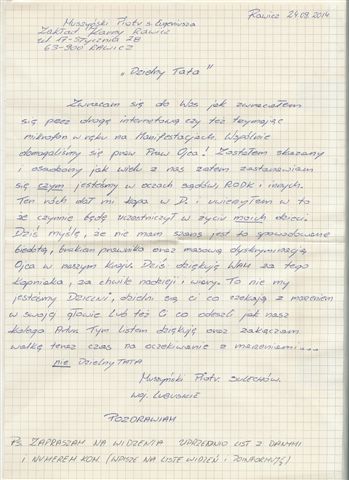 Rawicz 24.09.2014
Muszyński Piotr s. Eugeniusza
Zakład Karny Rawicz
ul 17-Stycznia 28
63-900 RAWICZ
„Dzielny Tata"
Zwracam się do Was jak zwracałem
się przez drogę internetową czy też trzymając
mikrofon w ręku na Manifestacjach. Wspólnie
domagaliśmy się praw Praw Ojca! Zostałem skazany
i osadzony jak wielu z nas zatem zastanawiam
się czym jesteśmy w oczach sądów, RODK i innych.
Ten ruch dał mi kopa w D. i uwierzyłem w to
że czynnie będę uczestniczył w życiu moich dzieci.
Dziś myślę, że nie mam szans jest to spowodowane
biedotą, brakiem prawnika oraz masową dyskryminacją
Ojca w naszym kraju. Dziś dziękuję WAM za tego
kopniaka, za chwile nadziei i wiary. To nie my
jesteśmy DZIELNI, dzielni są ci co czekają z marzeniem
w swojej głowie lub też Ci co odeszli jak nasz
kolega Tym listem dziękuję oraz zakańczam
walkę teraz czas na oczekiwanie z marzeniami...
nie Dzielny TATA
Muszyński Piotr. SULECHÓW.
woj. LUBUSKIE
POZDRAWIAM
Ps. ZAPRASZAM NA WIDZENIA UPRZEDNIO LIST Z DANYMI
I NUMEREM KOM. (WPISZĘ NA LISTĘ WIDZEŃ I POINFORMUJĘ)